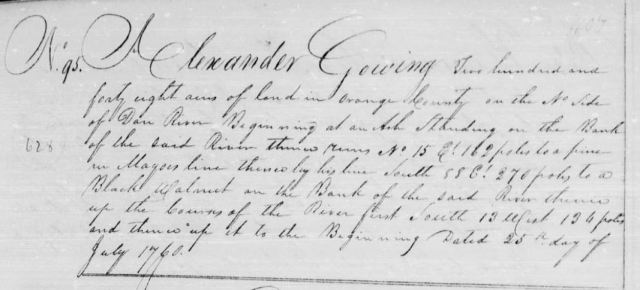 No. 95. Alexander Gowing Two hundred and
forty eight acres of land in Orange County on the No. Side
of Dan River Beginning at an Ash Standing on the Bank
628 of the said River thence runs No. 15 Et. 162 poles to a pine
in Mayoes line thence by his line South 88 Et. 270 poles to a
Black Walnut on the Bank of the said River thence
up the Courses of the River first South 13 West 134 poles
and thence up it to the Beginning Dated 25th. day of
July 1760.